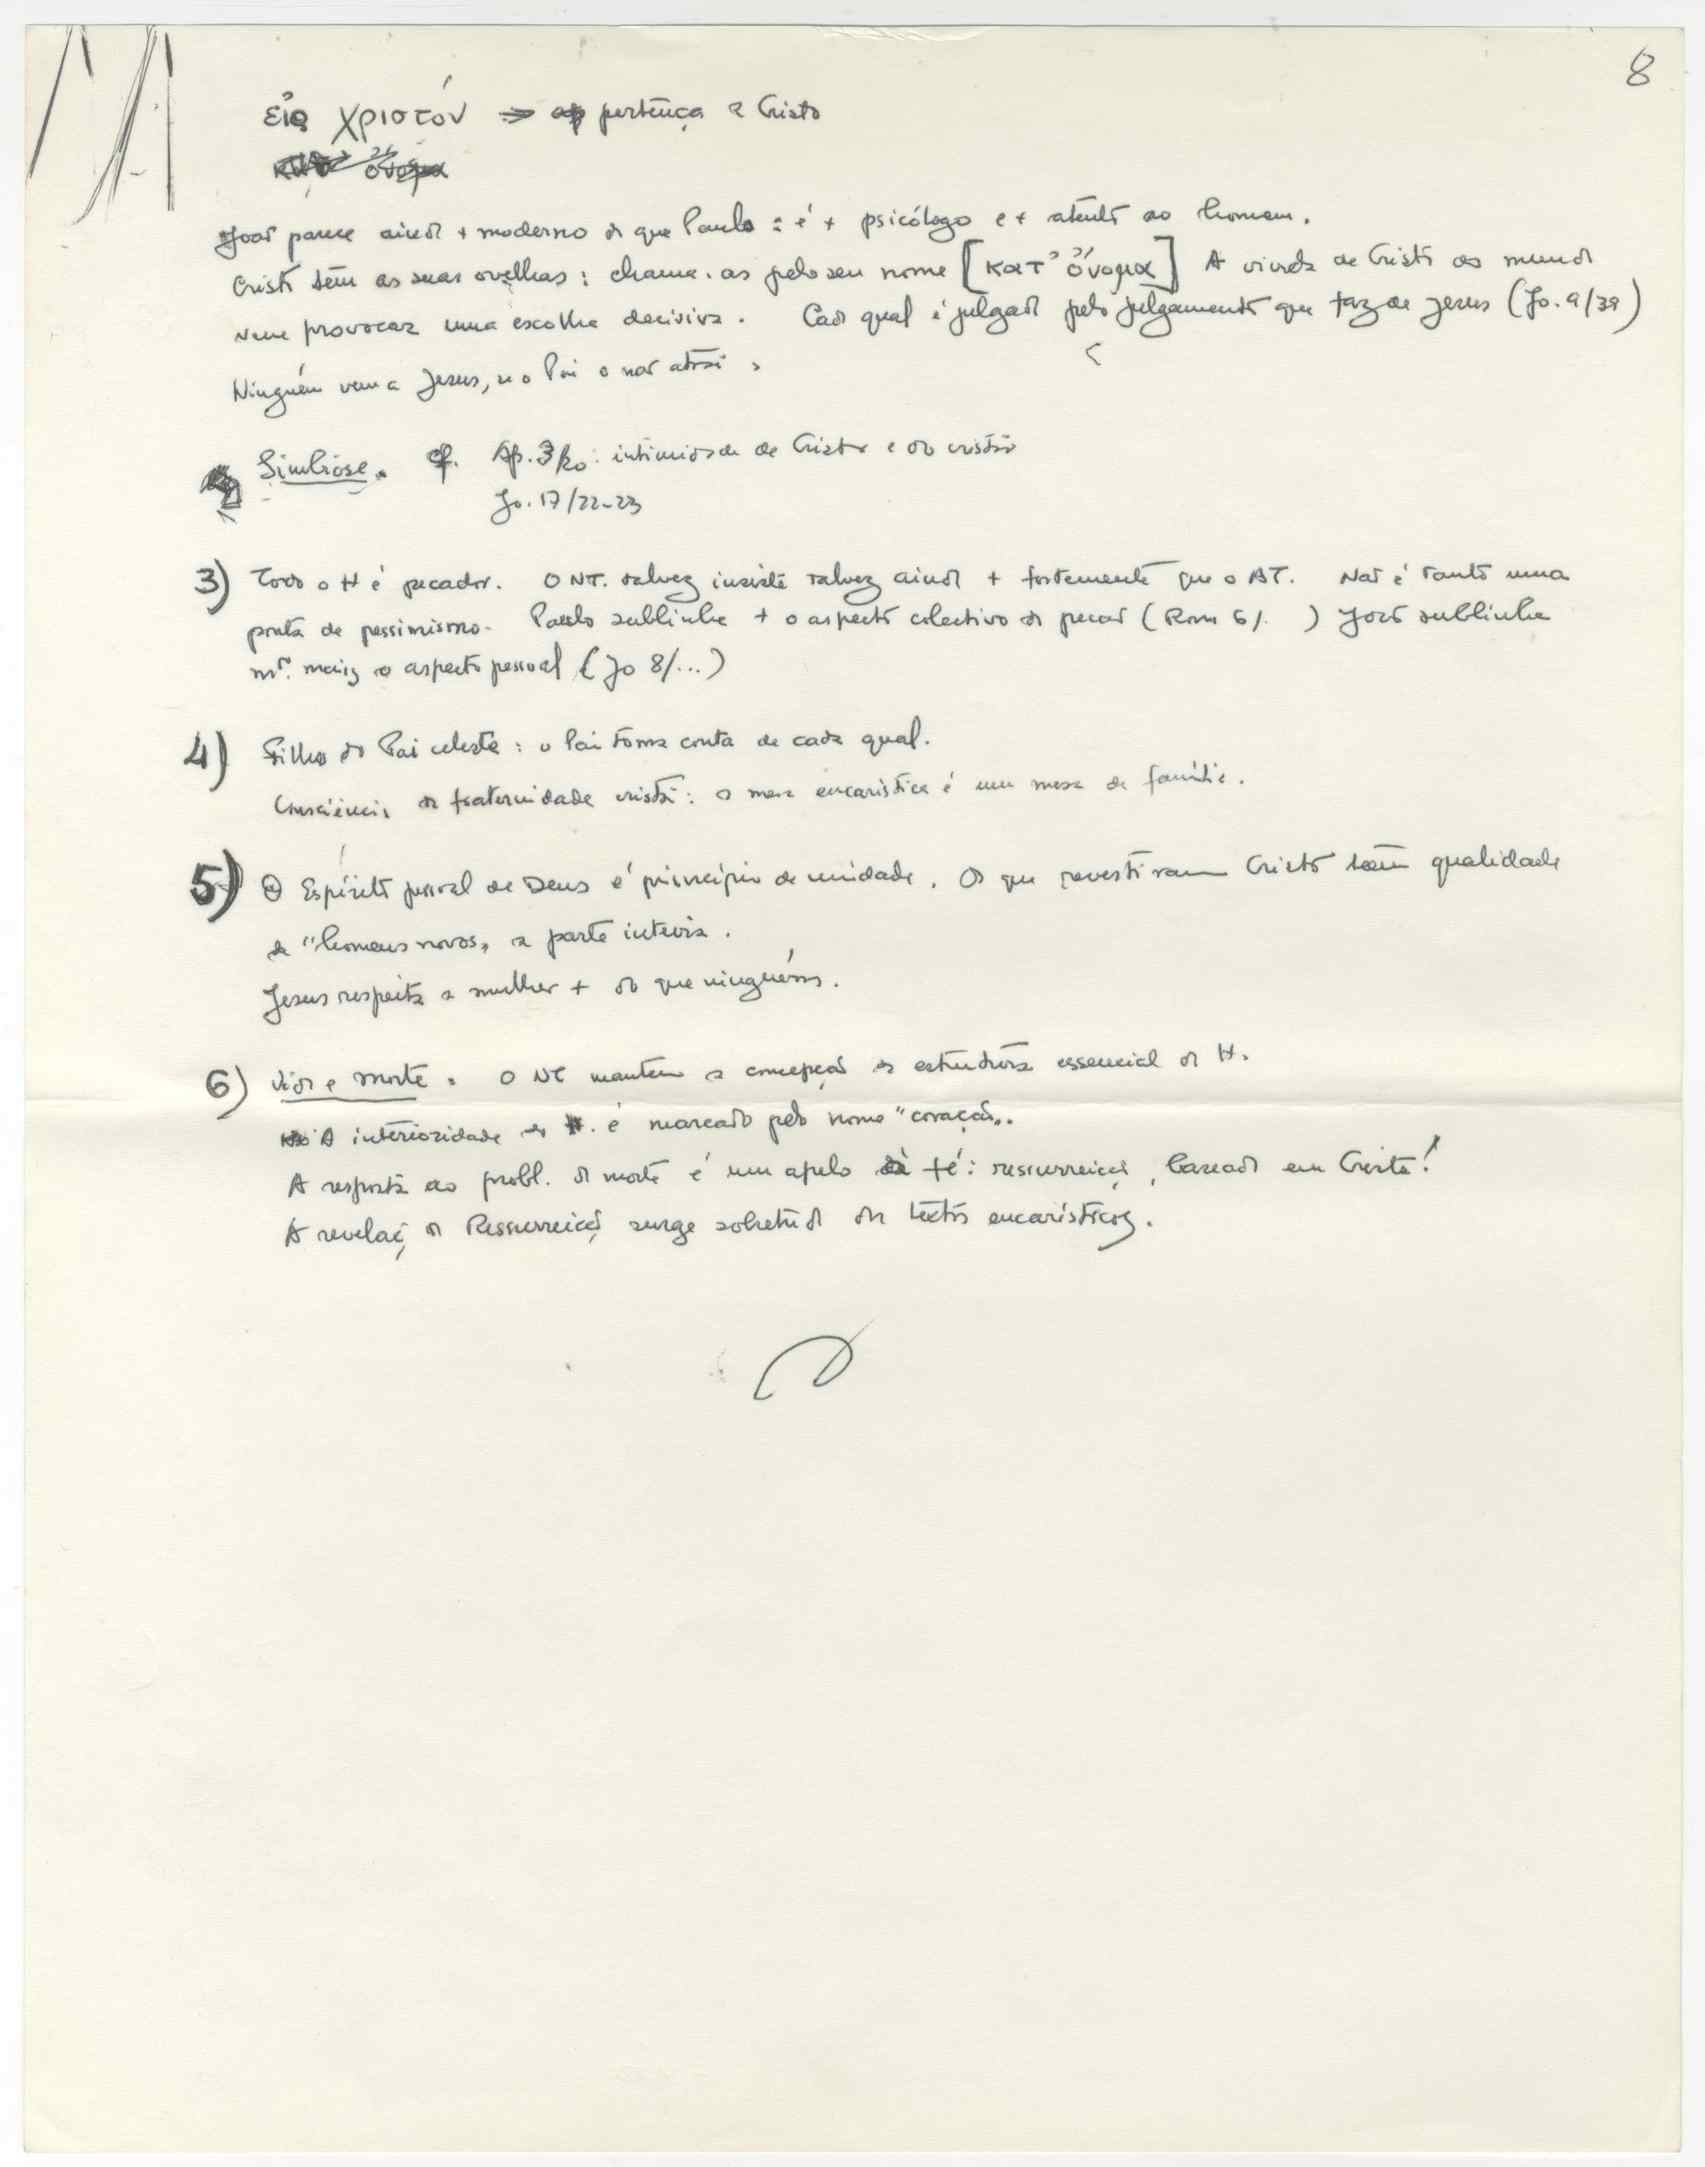 8
εἰς χριστόν => pertença a Cristo
João parece ainda + moderno do que Paulo : é + psicólogo e + atento ao homem.
Cristo tem as suas ovelhas : chama-as pelo seu nome [κατ' ὄνομα] A vinda de Cristo ao mundo
vem provocar uma escolha decisiva. Cada qual é julgado pelo julgamento que faz de Jesus (Jo. 9/39)
Ninguém vem a Jesus, se o Pai o não atrai.
Simbiose. cf. Ap. 3/20: intimidade de Cristo e do cristão
Jo. 17/22-23
3) Todo o H é pecador. O NT. talvez insiste talvez ainda + fortemente que o AT. Não é tanto uma
ponta de pessimismo. Paulo sublinha + o aspecto colectivo do pecado (Rom 6/. ) João sublinha
mto. mais o aspecto pessoal (Jo 8/...)
4) Filho do Pai celeste : o Pai toma conta de cada qual.
Consciência da fraternidade cristã: a mesa eucarística é uma mesa de família.
5) O Espírito pessoal de Deus é princípio de unidade. Os que revestiram Cristo têm qualidade
de "homens novos" a parte inteira.
Jesus respeita a mulher + do que ninguém.
6) Vida e morte. O NT mantem a concepção da estrutura essencial do H.
A interioridade do H. é marcado pelo nome "coração".
A resposta ao probl. da morte é um apelo à fé: ressurreição, baseada em Cristo!
A revelaç. da Ressurreição surge sobretudo dos textos eucarísticos.